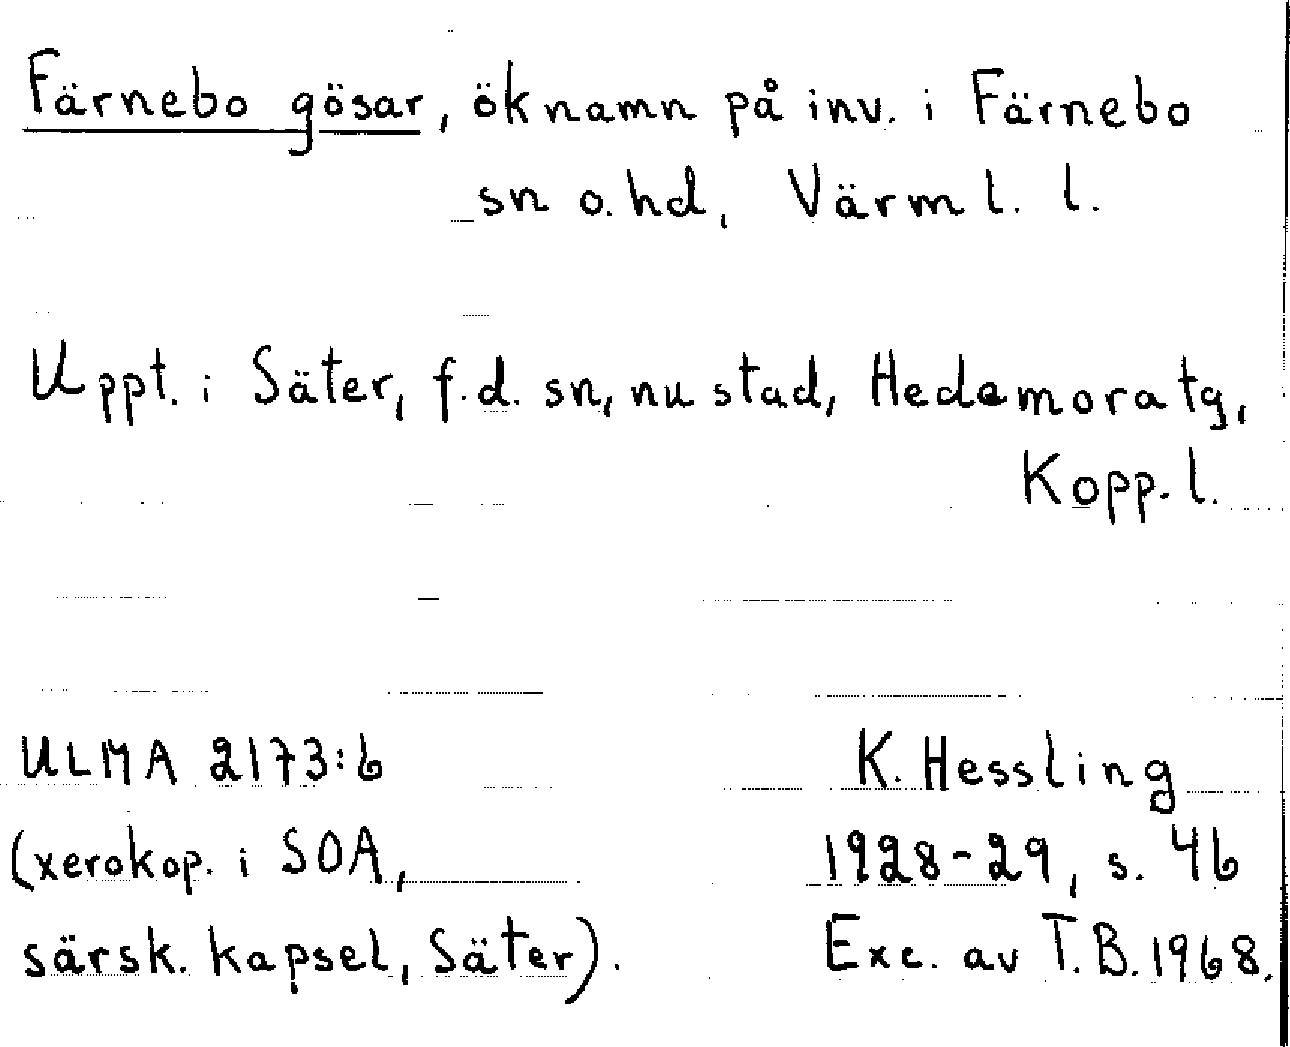 Färnebo gösar, öknamn på inv. i Färnebo
sn o. hd, Värml. l.
Uppt. i Säter, f.d. sn, nu stad, Hedemora tg,
Kopp. l.
ULMA 2173:6
(xerokop. i SOA,
särsk. kapsel, Säter).
K. Hessling
1928-29, s. 46
Exc. av T.B. 1968.